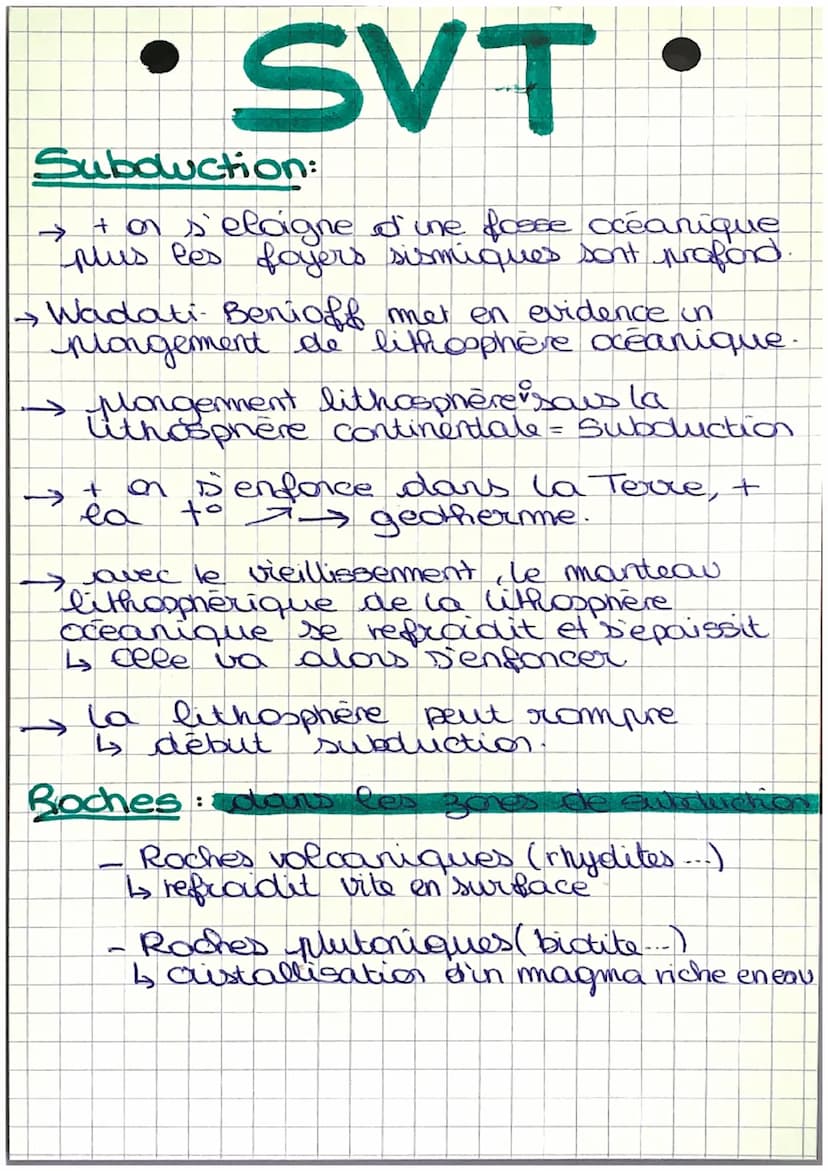 SVT
Subduction:
→ + on s'eloigne d'une fosse océanique
plus les foyers sismiques sont profond.
→ Wadati-Benioff met en evidence un
plongement de lithosphère océanique.
→ plongement lithosphère o sous la
lithosphère continentale = Subduction
→ + on s'enfonce dans la Terre, +
la t° ↗ → géotherme.
→ avec le vieillissement, le manteau
lithosphérique de la lithosphère
océanique se refroidit et s'epaissit
↳ elle va alors s'enfoncer
→ la lithosphère peut rompre
↳ début subduction.
Roches : dans les zones de subduction
- Roches volcaniques (rhyolites ...)
↳ refroidit vite en surface
- Roches plutoniques (biotite...)
↳ cristallisation d'un magma riche en eau